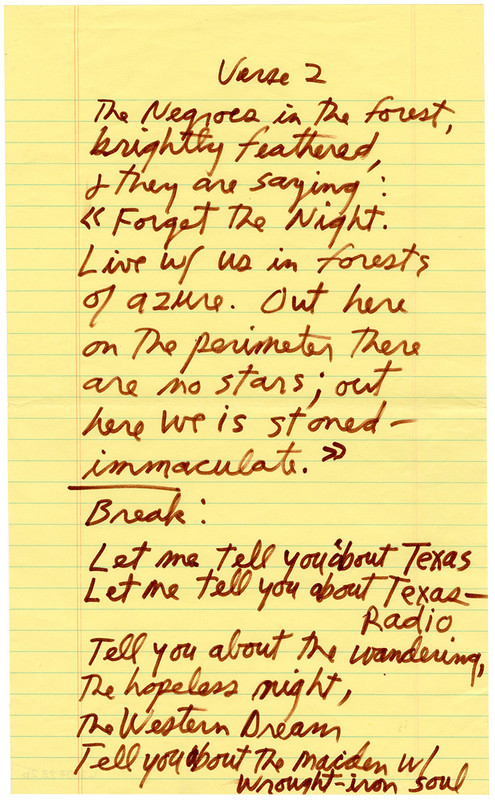 Verse 2
The Negroes in the forest,
brightly feathered,
& they are saying:
«Forget the Night.
Live w/ us in forests
of azure. Out here
on the perimeter there
are no stars; out
here we is stoned—
immaculate.»
Break:
Let me tell you about Texas
Let me tell you about Texas—
Radio
Tell you about the wandering,
the hopeless night,
the Western Dream
Tell you about the maiden w/
wrought-iron soul